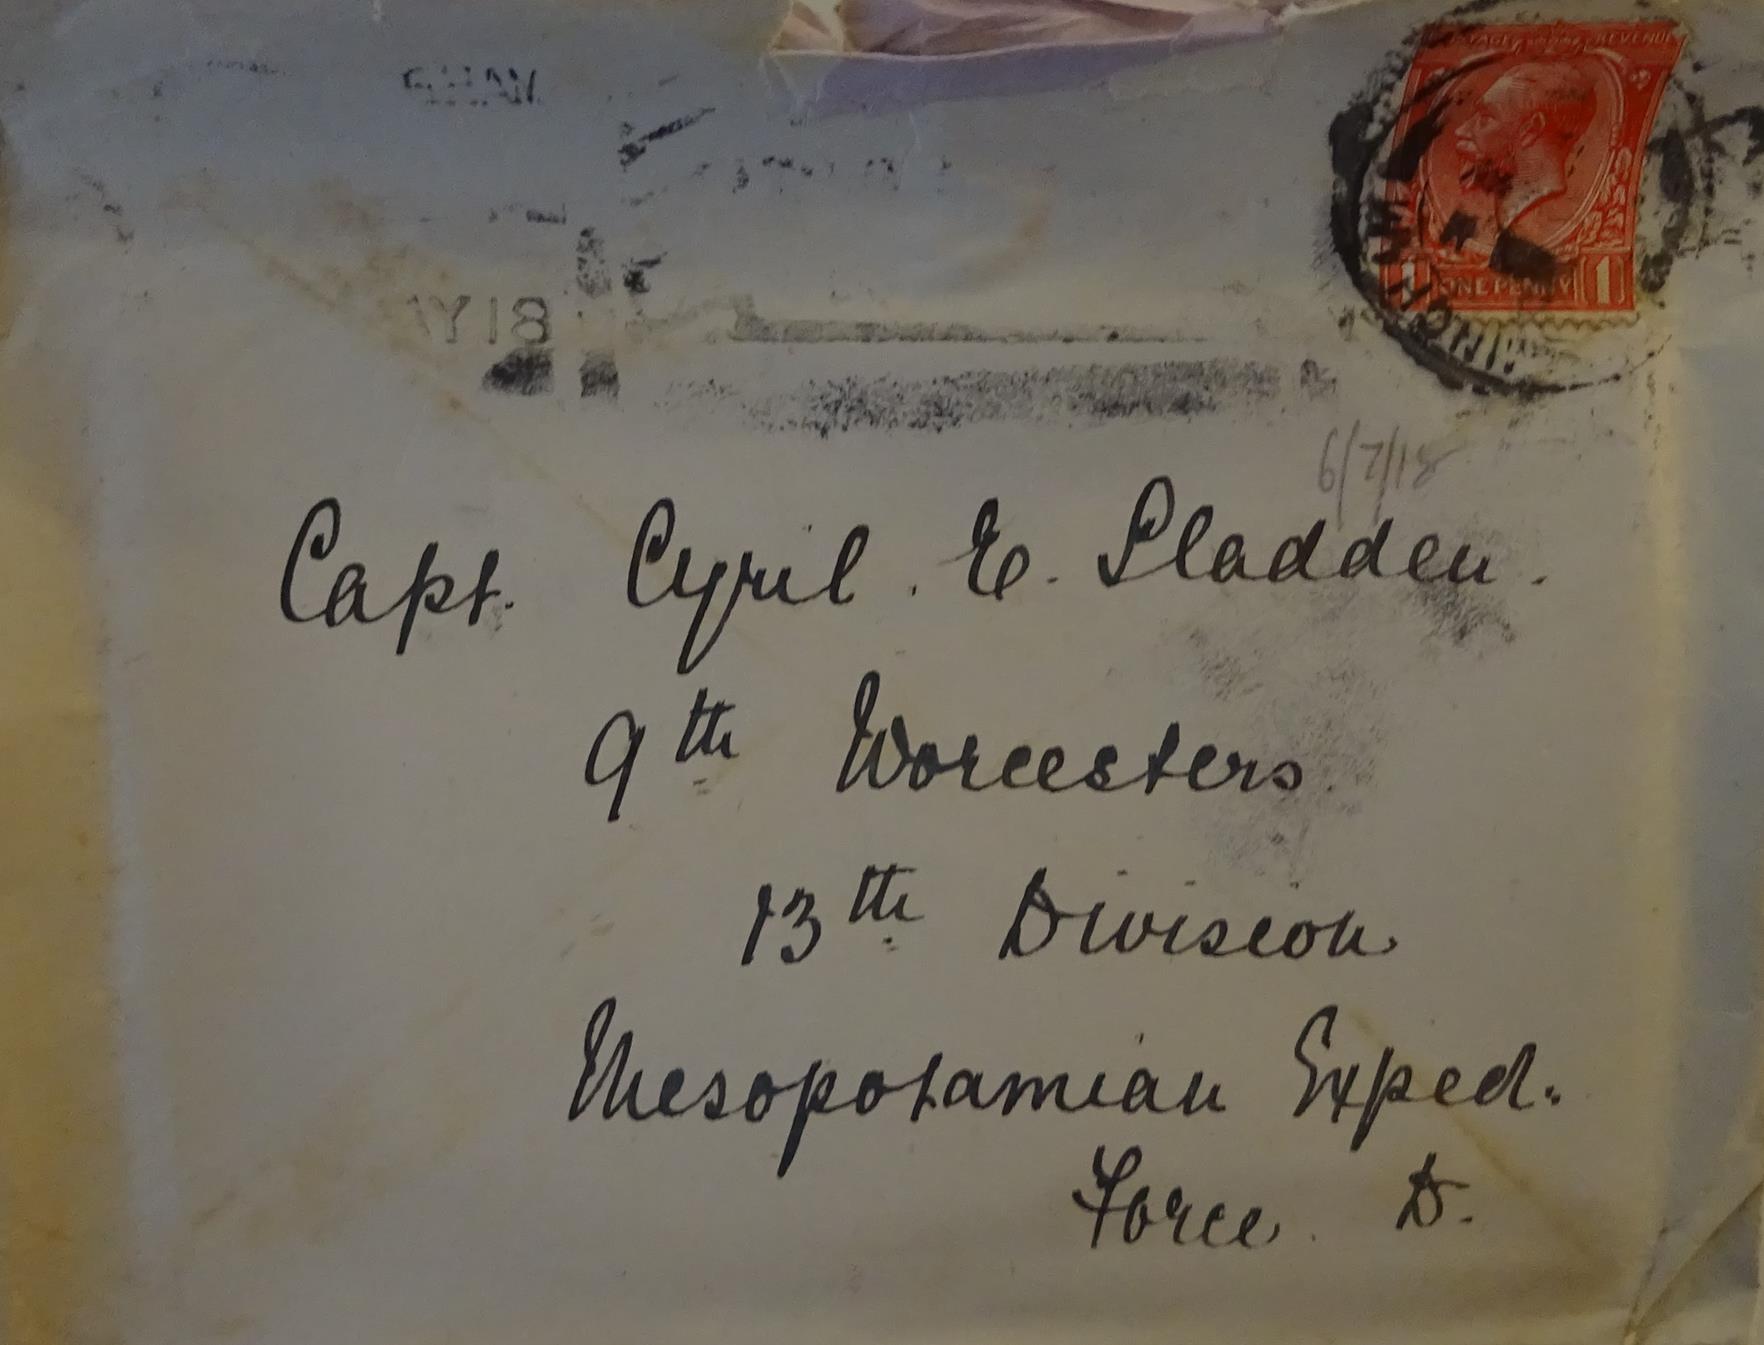 POSTAGE REVENUE
1 ONE PENNY 1
Y 18
6/7/18
Capt. Cyril. E. Sladden.
9th Worcesters
13th Division
Mesopotamian Exped.
Force. D.